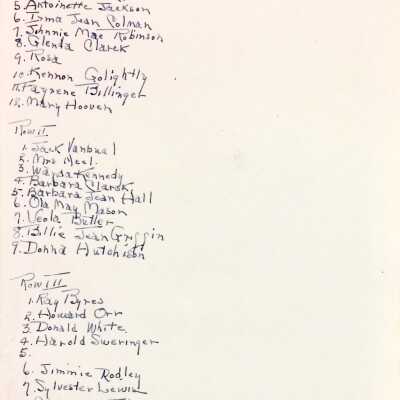 5. Antoinette Jackson
6. Irma Jean Colman
7. Johnnie Mae Robinson
8. Glenda Clarek
9. Rosa
10. Kennon Golightly
11. Fayrene Billinger
12. Mary Hooven
Row II
1. Jack Vanbual
2. Mrs Neel.
3. Wanda Kennedy
4. Barbara Clarek
5. Barbara Jean Hall
6. Ola May Mason
7. Veola Butler
8. Billie Jean Griggin
9. Donna Hutchison
Row III
1. Ray Byres
2. Howard Orr
3. Donald White.
4. Harold Sweringer
5.
6. Jimmie Rodley
7. Sylvester Lewis